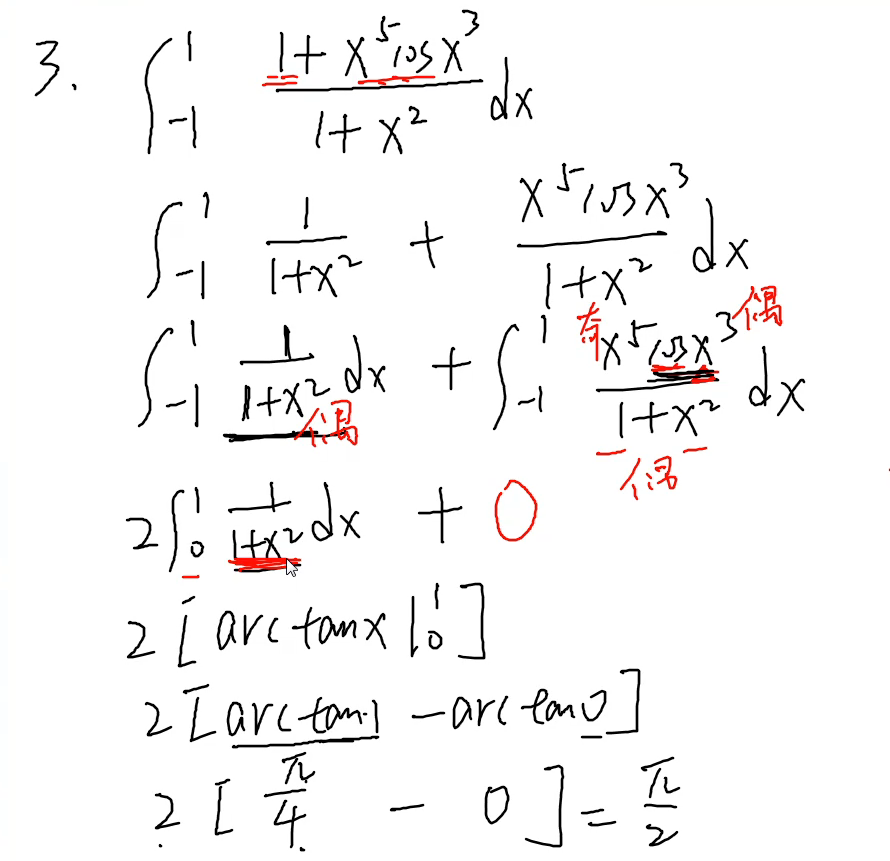 3. ∫₋₁¹ (1 + x⁵cosx³)/(1 + x²) dx
∫₋₁¹ 1/(1+x²) + x⁵cosx³/(1+x²) dx
∫₋₁¹ 1/(1+x²) dx + ∫₋₁¹ x⁵cosx³/(1+x²) dx
奇 偶
偶 偶
2∫₀¹ 1/(1+x²) dx + 0
2[arctanx|₀¹]
2[arctan1 - arctan0]
2[π/4 - 0] = π/2